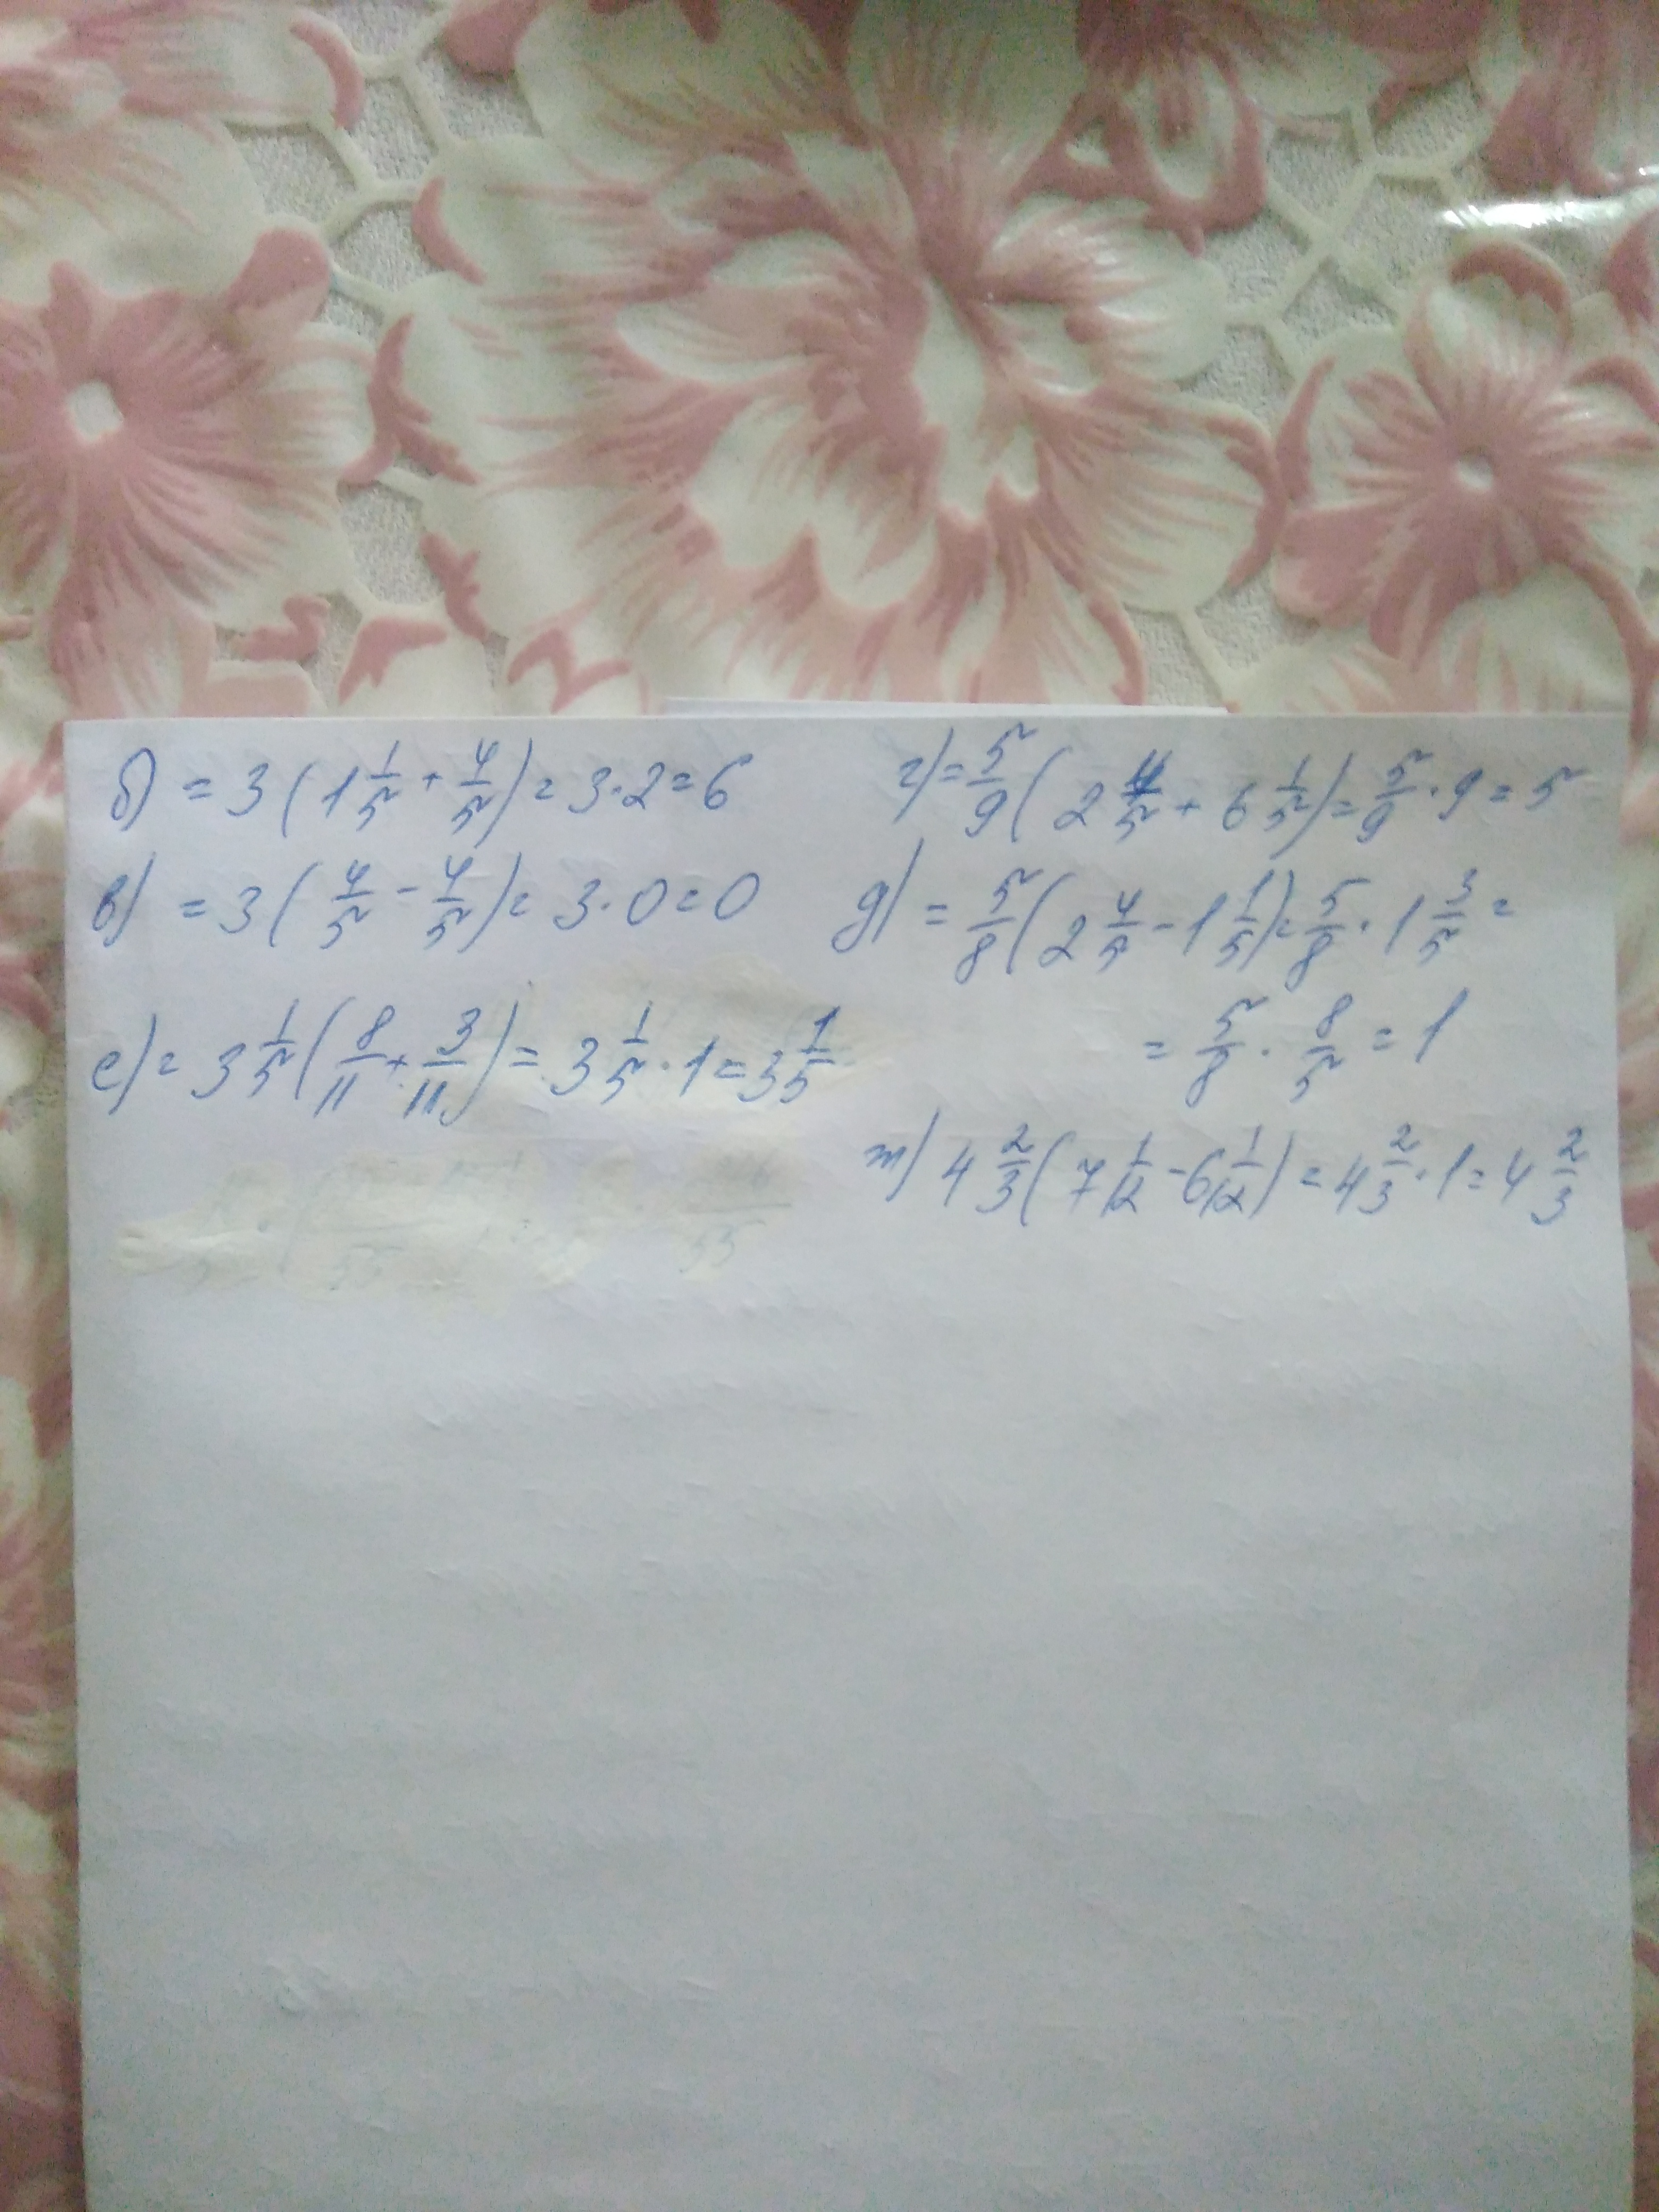 б) = 3 (1 1/5 + 4/5) = 3·2 = 6
в) = 3 (4/5 - 4/5) = 3·0 = 0
е) = 3 1/5 (8/11 + 3/11) = 3 1/5 · 1 = 3 1/5
г) = 5/9 (2 4/5 + 6 1/5) = 5/9 · 9 = 5
д) = 5/8 (2 4/5 - 1 1/5) = 5/8 · 1 3/5 =
= 5/8 · 8/5 = 1
т) 4 2/3 (7 1/12 - 6 1/12) = 4 2/3 · 1 = 4 2/3